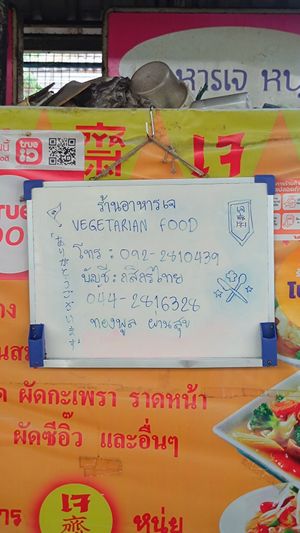 หารเจ หนุ
true
齋 เจ
ร้านอาหารเจ
VEGETARIAN FOOD
โทร : 092-2810439
บัญชี : กสิกรไทย
044-2816328
ทองพูล ผานสุข
เจ
ผัดกะเพรา ราดหน้า
ผัดซีอิ๊ว และอื่นๆ
เจ
齋
หนุ่ย